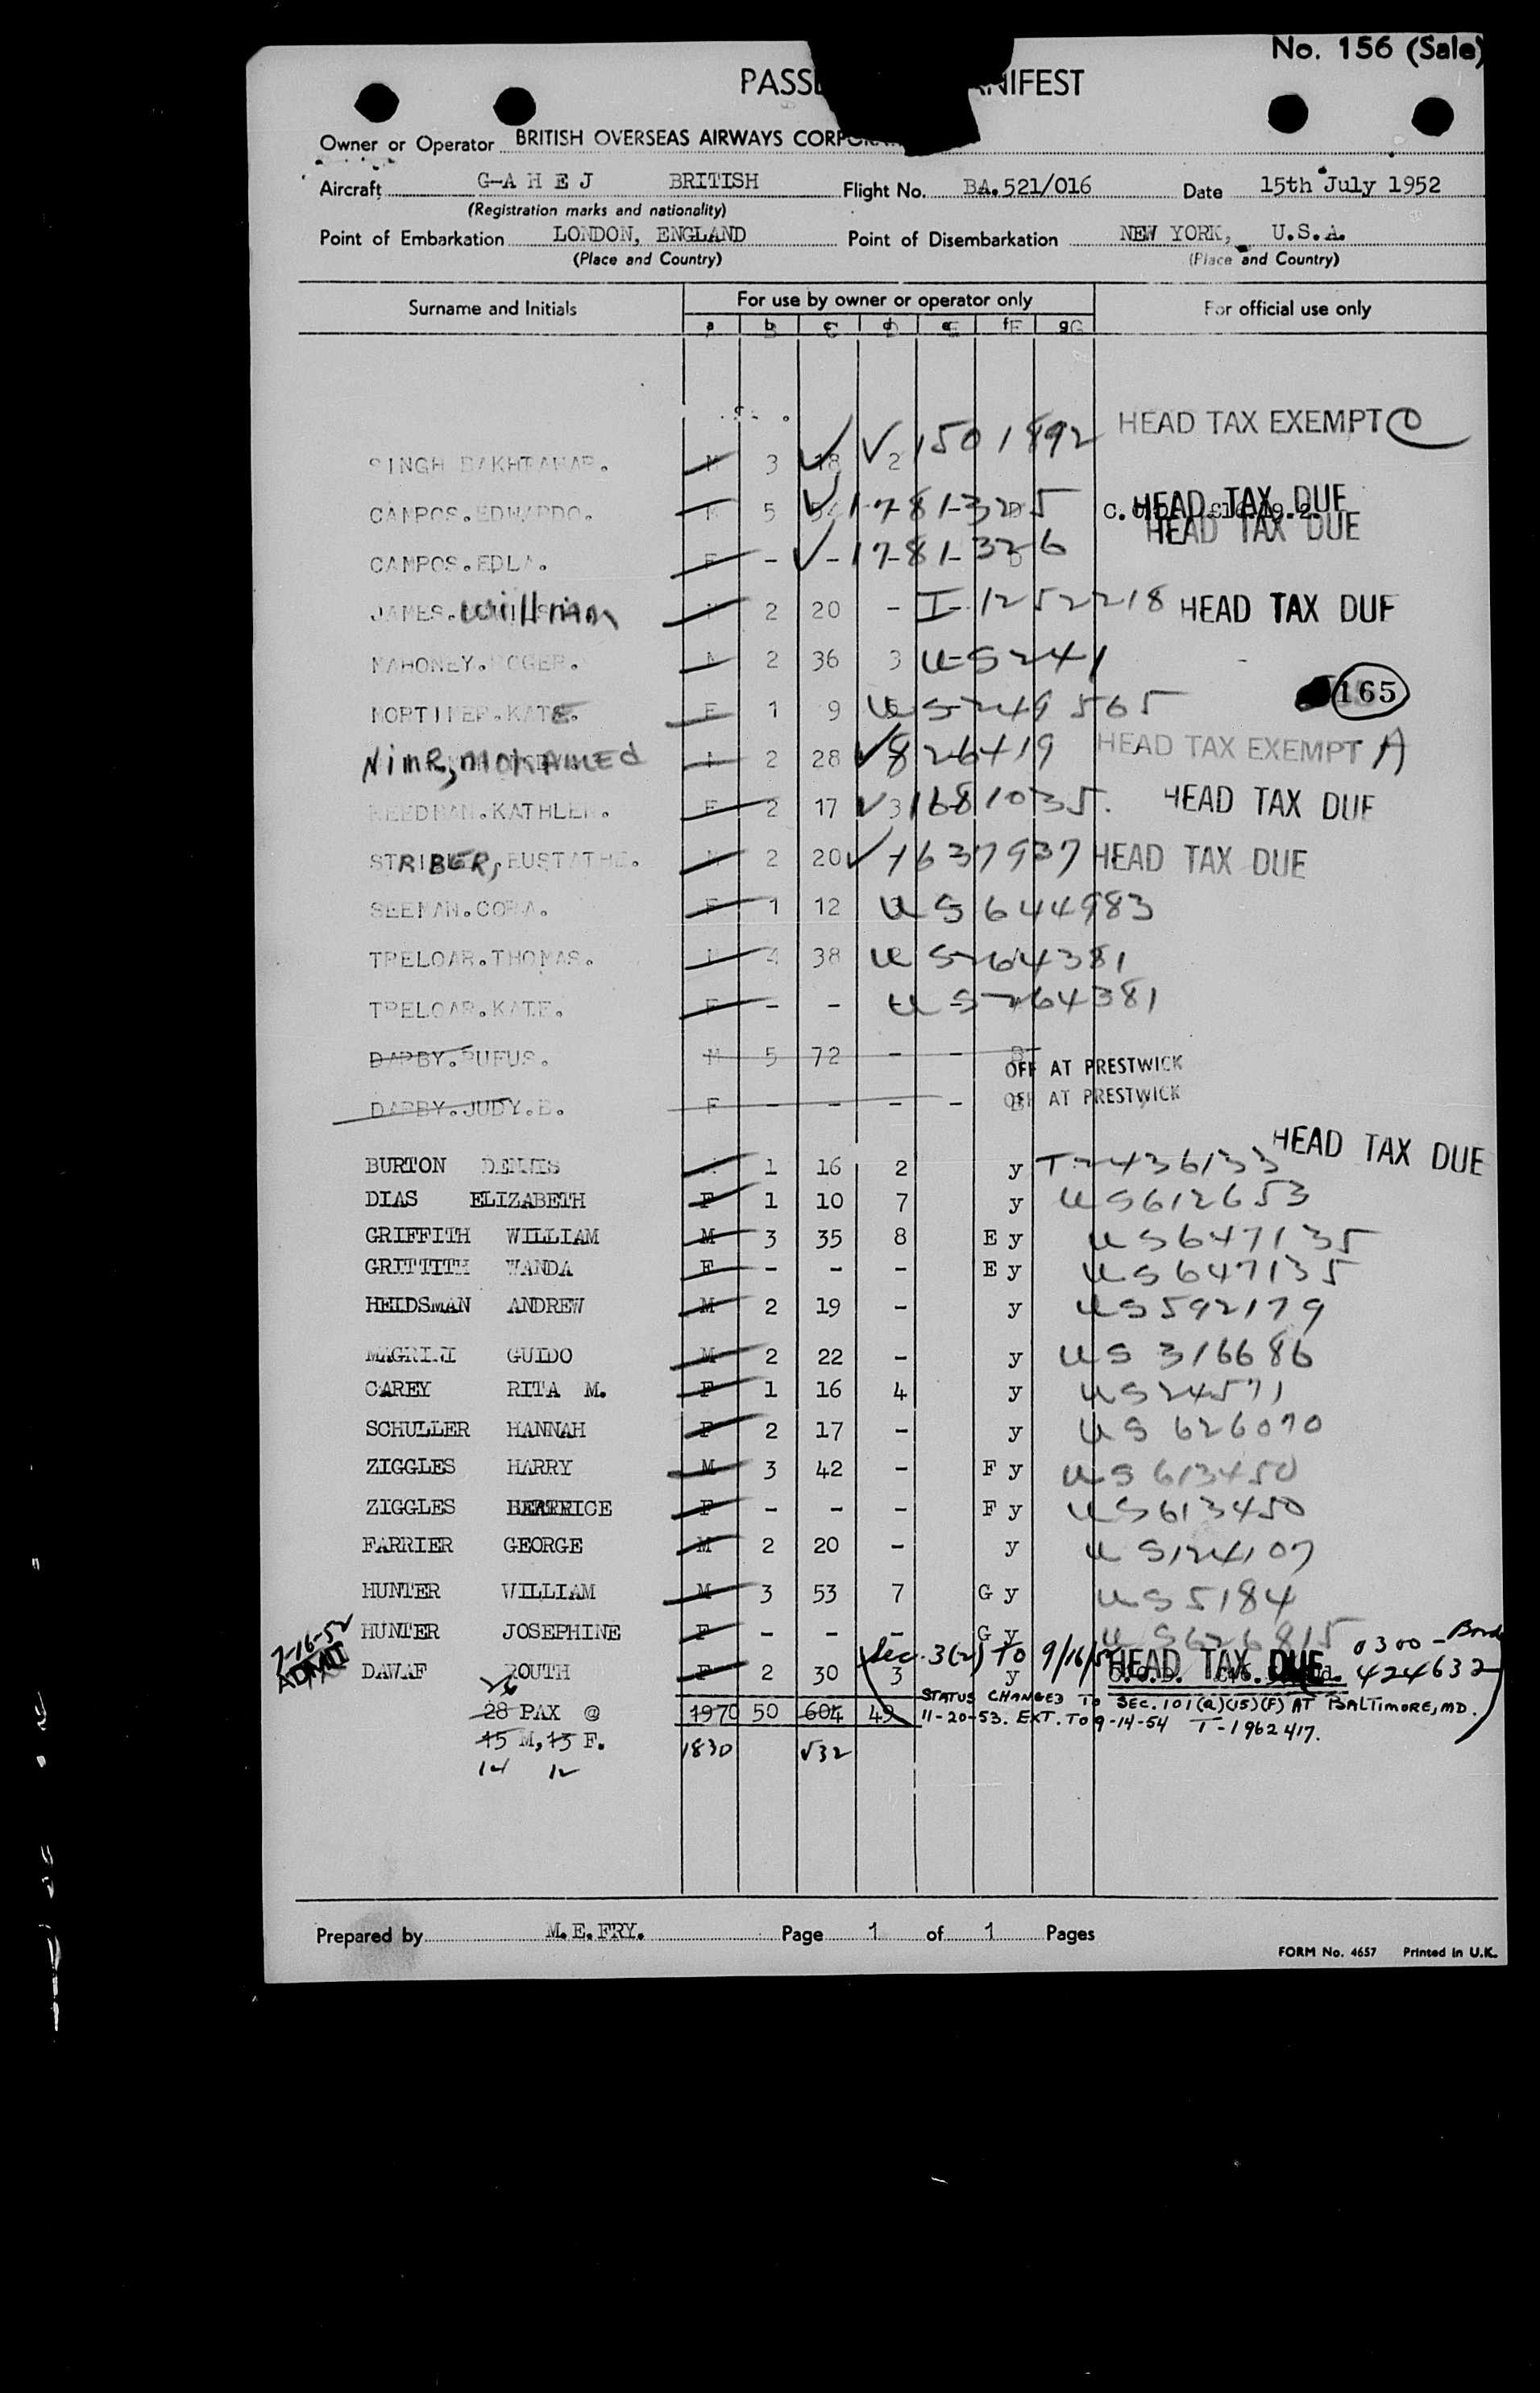 No. 156 (Sale)
PASS NIFEST
Owner or Operator BRITISH OVERSEAS AIRWAYS
Aircraft G-A H E J BRITISH Flight No. BA.521/016 Date 15th July 1952
(Registration marks and nationality)
Point of Embarkation LONDON, ENGLAND Point of Disembarkation NEW YORK, U.S.A.
(Place and Country) (Place and Country)
Surname and Initials For use by owner or operator only For official use only
a b c d e f g G
HEAD TAX EXEMPT C
SINGH BAKHTAWAR. M 3 18 2 1501892
CAMPOS.EDWARDO. M 5 1781325 HEAD TAX DUE
HEAD TAX DUE
CAMPOS.EDLA. F - - 1781-326
JAMES. William M 2 20 - I-1252218 HEAD TAX DUE
MAHONEY.ROGER. M 2 36 3 US 241
165
MORTIMER.KATE. F 1 9 US 249565
NIMR, MOHAMED M 2 28 826419 HEAD TAX EXEMPT A
KATHLEEN. F 2 17 3 1681035. HEAD TAX DUE
STRIBER, EUSTATHE. M 2 20 1637937 HEAD TAX DUE
SEEMAN.CORA. F 1 12 US 644983
TRELOAR.THOMAS. M 4 38 US 264381
TRELOAR.KATE. F - - US 264381
DARBY.RUFUS. M 5 72 - - B OFF AT PRESTWICK
DARBY.JUDY.B. F - - - - OFF AT PRESTWICK
HEAD TAX DUE
BURTON DENNIS M 1 16 2 y T-2436133
DIAS ELIZABETH F 1 10 7 y US612653
GRIFFITH WILLIAM M 3 35 8 E y US647135
GRITTITH WANDA F - - - E y US647135
HEIDSMAN ANDREW M 2 19 - y US592179
MAGRINI GUIDO M 2 22 - y US 316686
CAREY RITA M. F 1 16 4 y US24571
SCHULLER HANNAH F 2 17 - y US 626070
ZIGGLES HARRY M 3 42 - F y US613450
ZIGGLES BEATRICE F - - - F y US613450
FARRIER GEORGE M 2 20 - y US124107
HUNTER WILLIAM M 3 53 7 G y US5184
7-16-52 HUNTER JOSEPHINE F - - - G y US626815
ADMIT Sec. 3(2) TO 9/16/5 0300-Bond
DAWAF ROUTH F 2 30 3 y HEAD TAX DUE 424632
26 STATUS CHANGED TO SEC.101(a)(15)(F) AT BALTIMORE, MD.
28 PAX @ 1970 50 604 49 11-20-53. EXT. TO 9-14-54 T-1962417.
15 M, 13 F. 1830 532
14 12
Prepared by M.E.FRY. Page 1 of 1 Pages
FORM No. 4657 Printed in U.K.